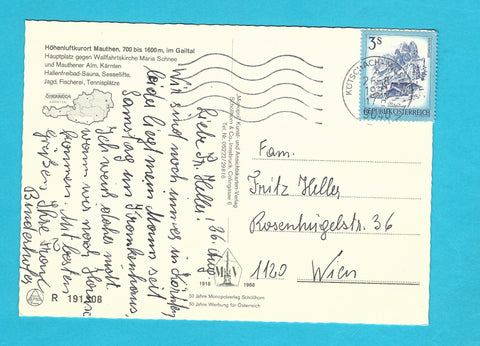 Höhenluftkurort Mauthen, 700 bis 1600m, im Gailtal
Hauptplatz gegen Wallfahrtskirche Maria Schnee
und Mauthener Alm, Kärnten
Hallenfreibad-Sauna, Sessellifte,
Jagd, Fischerei, Tennisplätze
Liebe Fr. Heller!
Wir sind noch immer in Kärnten,
leider liegt mein Mann seit
Samstag im Krankenhaus,
Ich weiß daher nicht
wann wir nach Hause
kommen. Mit besten
Grüßen Ihre
Binderhofer
R 191308
1918 1968
50 Jahre Monopolverlag Schöllhorn
50 Jahre Werbung für Österreich
3S
REPUBLIK ÖSTERREICH
KÖTSCHACH-
Fam.
Fritz Heller
Rosenhügelstr. 36
1120 Wien